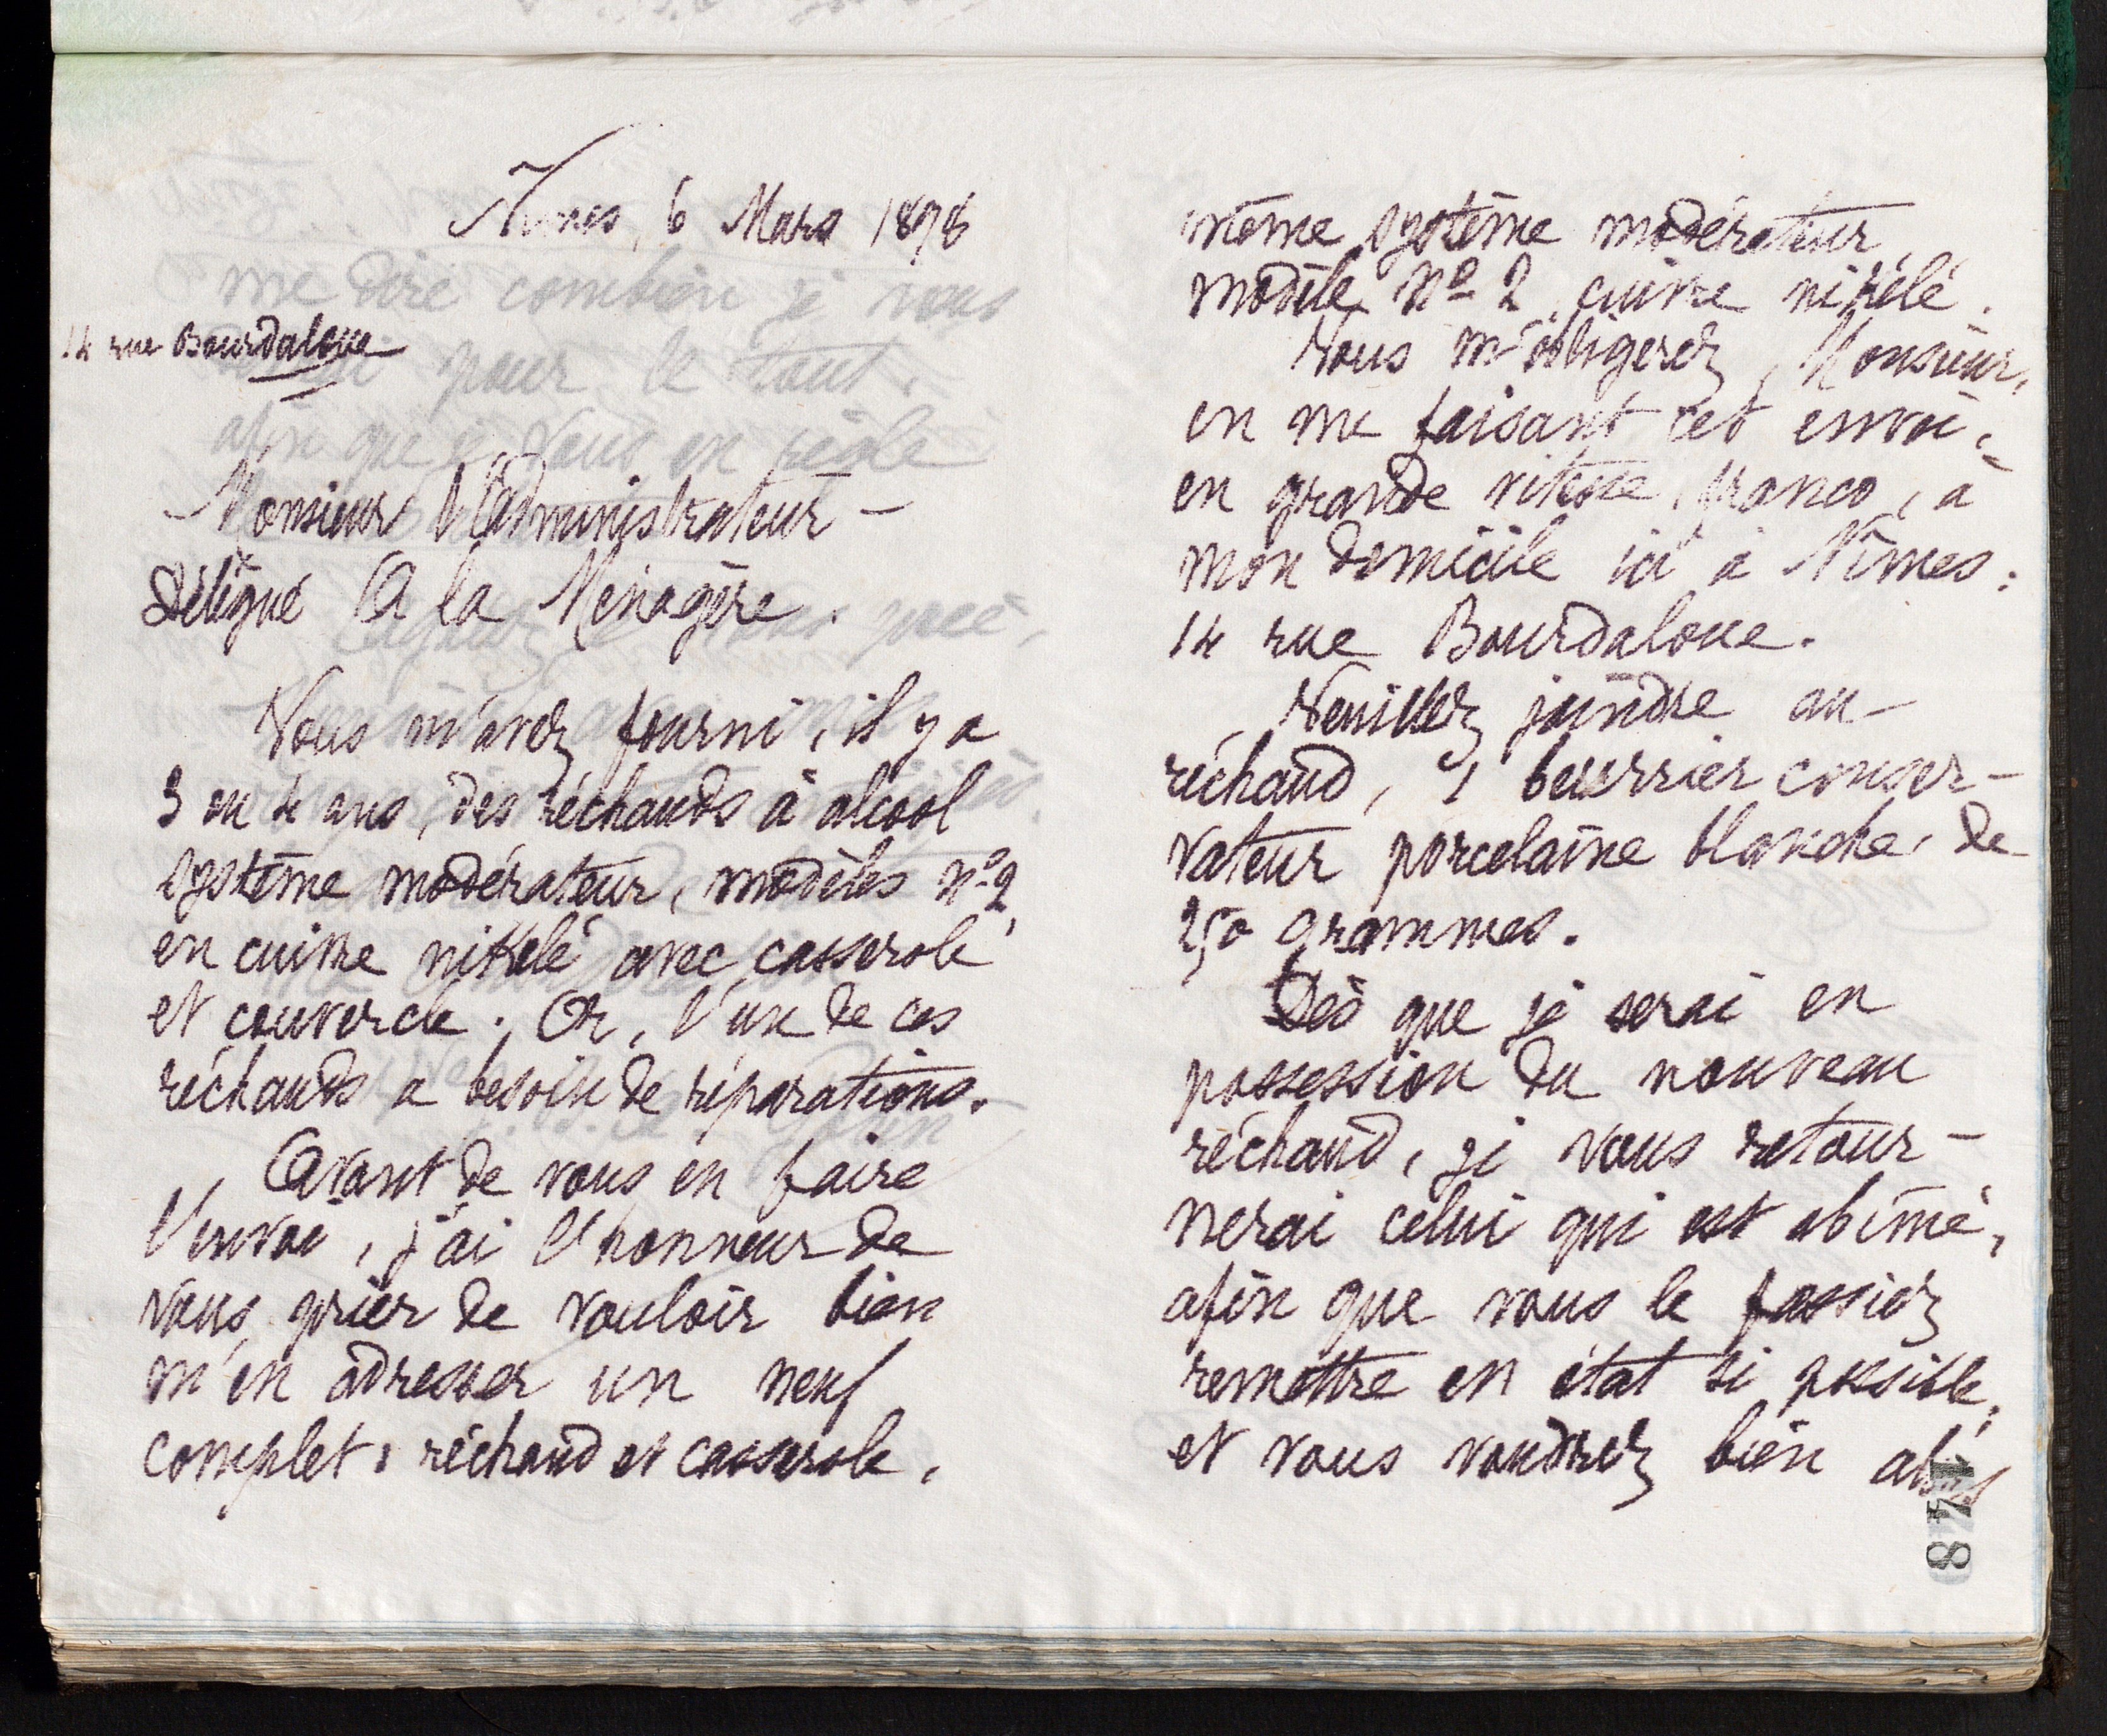 Nimes, 6 Mars 1898
14 rue Bourdaloue
Monsieur l'Administrateur-
Délégué A la Ménagère.
Vous m'avez fourni, il y a
3 ou 4 ans, des réchauds à alcool
système modérateur, modèles nº 2,
en cuivre nikelé avec casserole
et couvercle. Or, l'un de ces
réchauds a besoin de réparations.
Avant de vous en faire
l'envoi, j'ai l'honneur de
vous prier de vouloir bien
m'en adresser un neuf
complet : réchaud et casserole,
même système modérateur,
modèle nº 2, cuivre nikélé.
Vous m'obligerez, Monsieur,
en me faisant cet envoi,
en grande vitesse, franco, à
mon domicile ici à Nîmes :
14 rue Bourdaloue.
Veuillez joindre au
réchaud, 1 beurrier conser-
vateur porcelaine blanche, de
250 grammes.
Dès que je serai en
possession du nouveau
réchaud, je vous retour-
nerai celui qui est abîmé,
afin que vous le fassiez
remettre en état si possible,
et vous voudrez bien alors
148
me dire combien je vous
pour le tout,
afin que je vous en règle